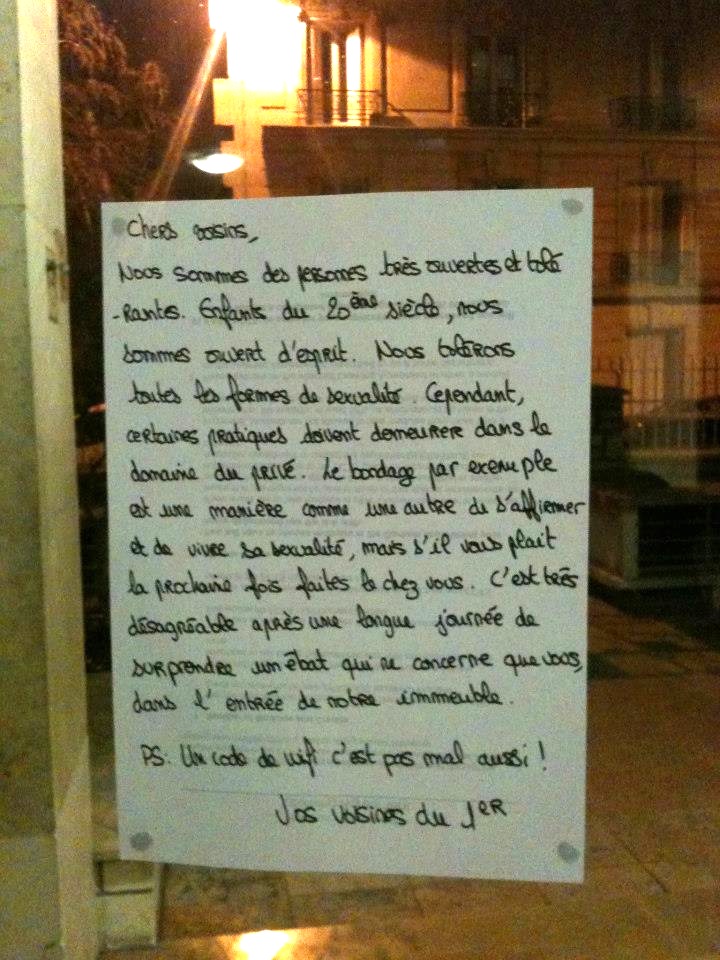 Chers voisins,
Nous sommes des personnes très ouvertes et tolé
-rantes. Enfants du 20ème siècle, nous
sommes ouvert d'esprit. Nous tolérons
toutes les formes de sexualité. Cependant,
certaines pratiques doivent demeurer dans le
domaine du privé. Le bondage par exemple
est une manière comme une autre de s'affirmer
et de vivre sa sexualité, mais s'il vous plait
la prochaine fois faites le chez vous. C'est très
désagréable après une longue journée de
surprendre un ébat qui ne concerne que vous,
dans l'entrée de notre immeuble.
PS: Un code de wifi c'est pas mal aussi !
Vos voisines du 1er